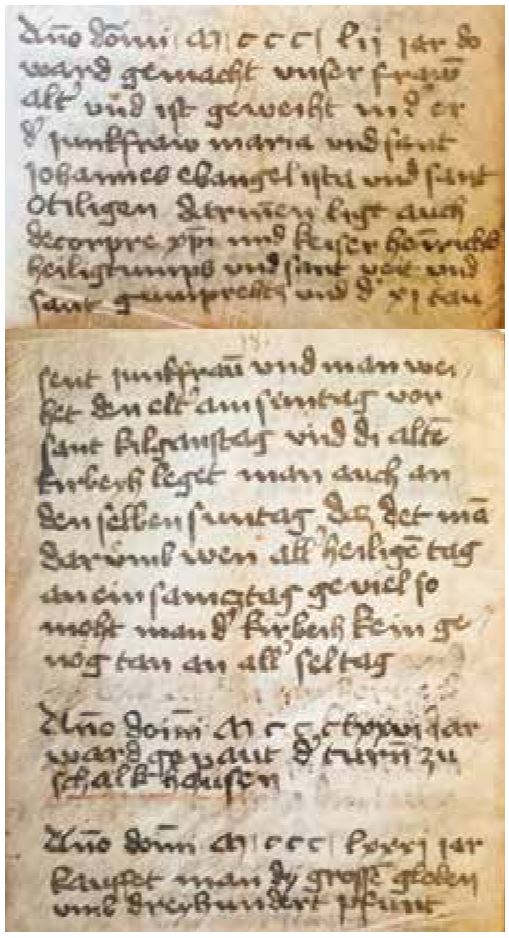 Anno domini M c c c lij jar do
ward gemacht vnser frawē
alt' vnd ist geweiht in d' er
d' junkfraw maria vnd sant
johannes ebangelista vnd sant
Otiligen darinnen ligt auch
de corpre xpi vnd keiser heinrichs
heiligtumps vnd sant veit vnd
sant gumprechts vnd d' xj tau
sent junkfraū vnd man wei
het den elt' am suntag vor
sant kilganstag vnd di altē
kirbeih leget man auch an
den selben suntag daz det mā
darumb wen all' heiligē tag
an ein samcztag geviel so
moht man d' kirbeih kein ge
nog tan an all' seltag
Año doīni M c c c lxxvi jar
ward gepaut d' turn zu
schalkhausen
Año domī M c c c lxxxj jar
kauffet man dy grossē gloken
vmb dreyhundert pfunt